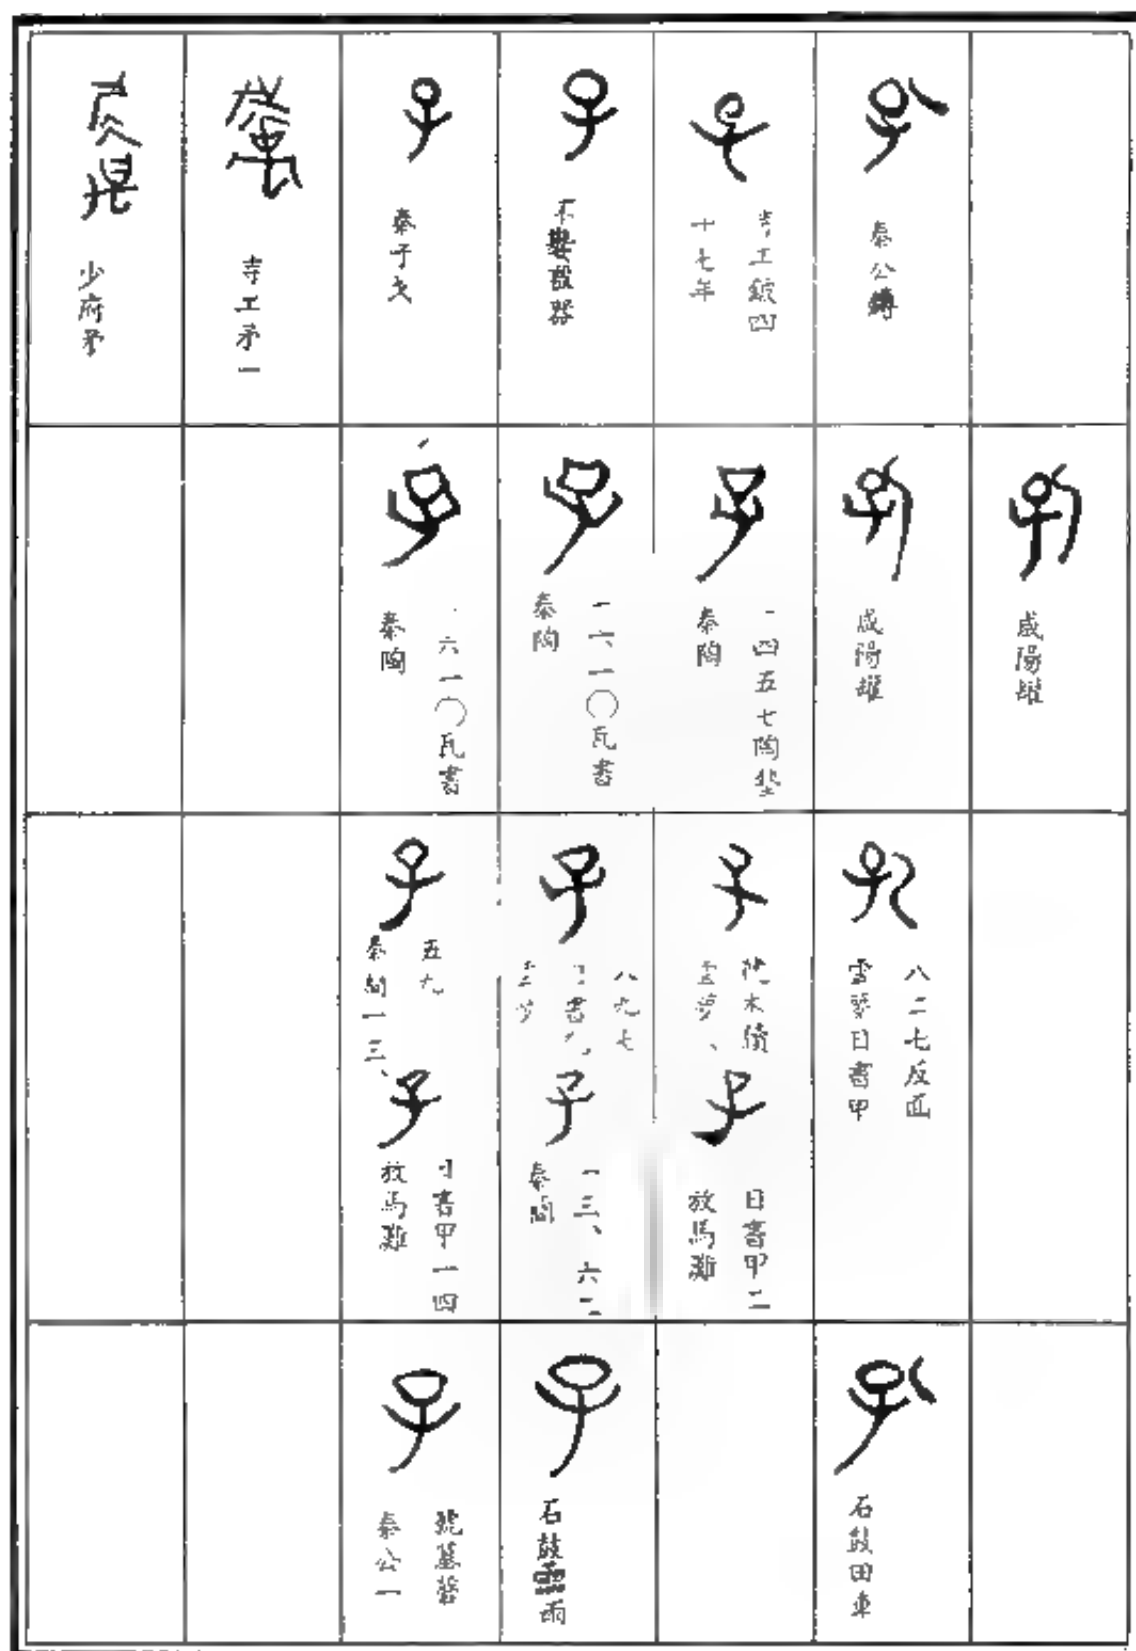 孔
秦公鎛
子
寺工鈹四
十七年
子
器
子
秦子戈
寺工矛一
少府矛
咸陽罐
咸陽罐
子
一四五七陶墊
秦陶
子
一六一〇瓦書
秦陶
子
六一〇瓦書
秦陶
孔
八二七反面
雲夢日書甲
子
木牘
雲夢、
子
日書甲二
放馬灘
子
八九七
日書
子
一三、六二
秦陶
子
五九
秦陶一三、
子
日書甲一四
放馬灘
孔
石鼓田車
子
石鼓雨
子
號墓磬
秦公一